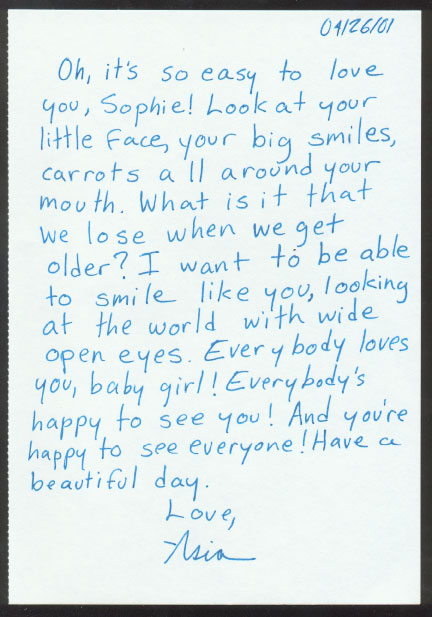 04/26/01
Oh, it's so easy to love
you, Sophie! Look at your
little face, your big smiles,
carrots all around your
mouth. What is it that
we lose when we get
older? I want to be able
to smile like you, looking
at the world with wide
open eyes. Everybody loves
you, baby girl! Everybody's
happy to see you! And you're
happy to see everyone! Have a
beautiful day.
Love,
Asia